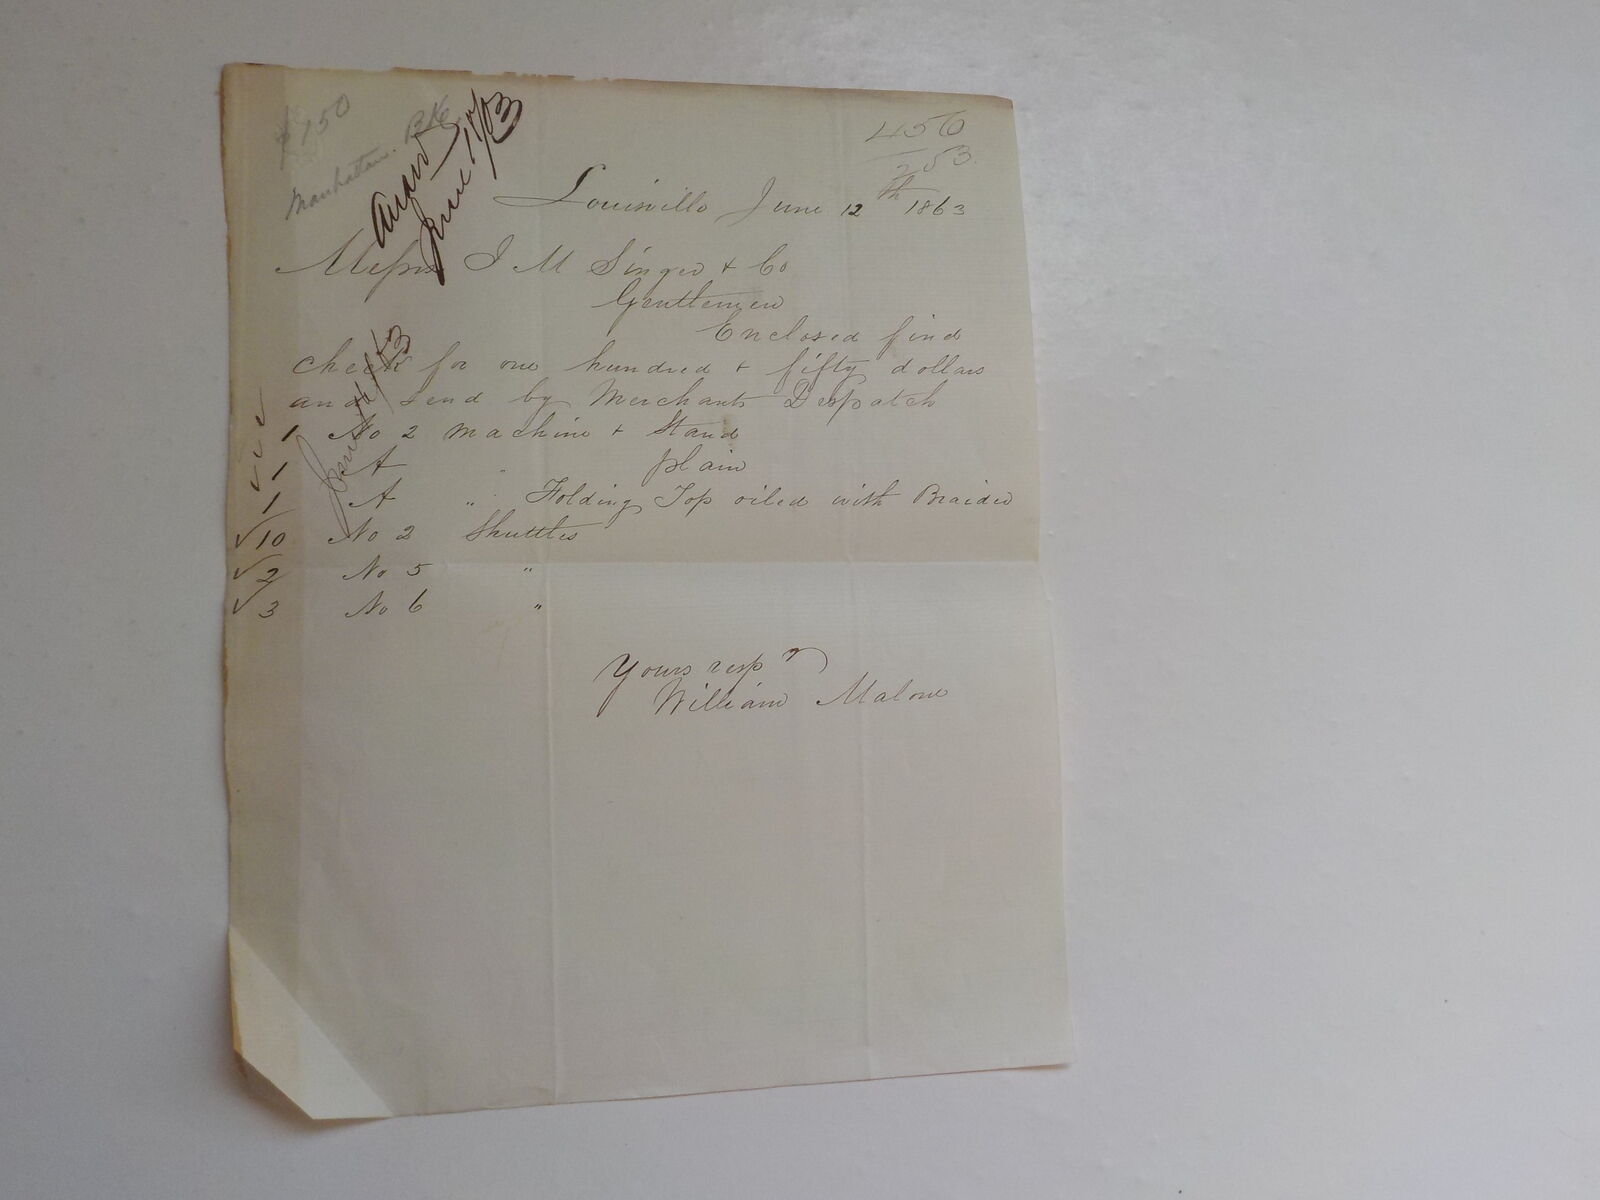 $150
Manhattan. BK
June 18/63
456
253.
Louisville June 12th 1863
Messrs I M Singer & Co
Gentlemen
Enclosed find
check for one hundred & fifty dollars
and send by Merchants Despatch
1 No 2 Machine & Stand
1 A " plain
1 A " Folding Top oiled with Braider
√10 No 2 Shuttles
√2 No 5 "
√3 No 6 "
Yours resp y
William Malone